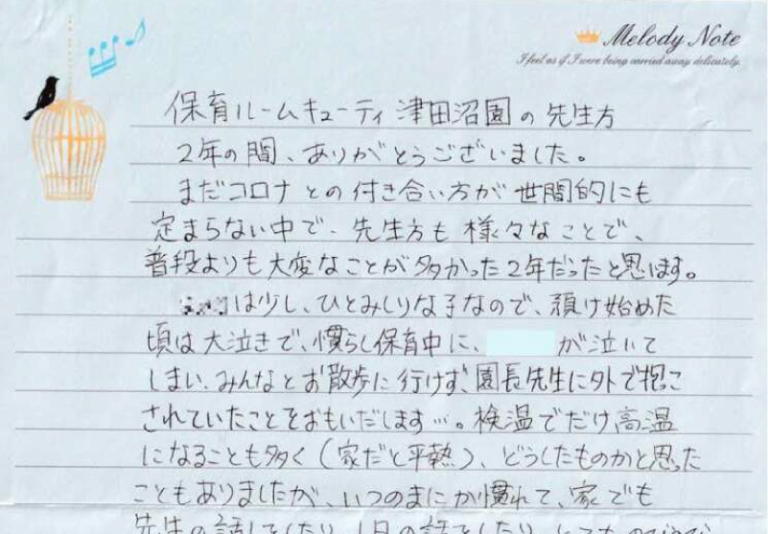 Melody Note
I feel as if I were being carried away delicately.
保育ルームキューティ津田沼園の先生方
2年の間、ありがとうございました。
まだコロナとの付き合い方が世間的にも
定まらない中で、先生方も様々なことで、
普段よりも大変なことが多かった2年だったと思います。
は少し、ひとみしりな子なので、預け始めた
頃は大泣きで、慣らし保育中に、 が泣いて
しまい、みんなとお散歩に行けず、園長先生に外で抱っこ
されていたことをおもいだします…。検温でだけ高温
になることも多く(家だと平熱)、どうしたものかと思った
こともありましたが、いつのまにか慣れて、家でも
先生の話しをしたり、1日の話をしたり、とても